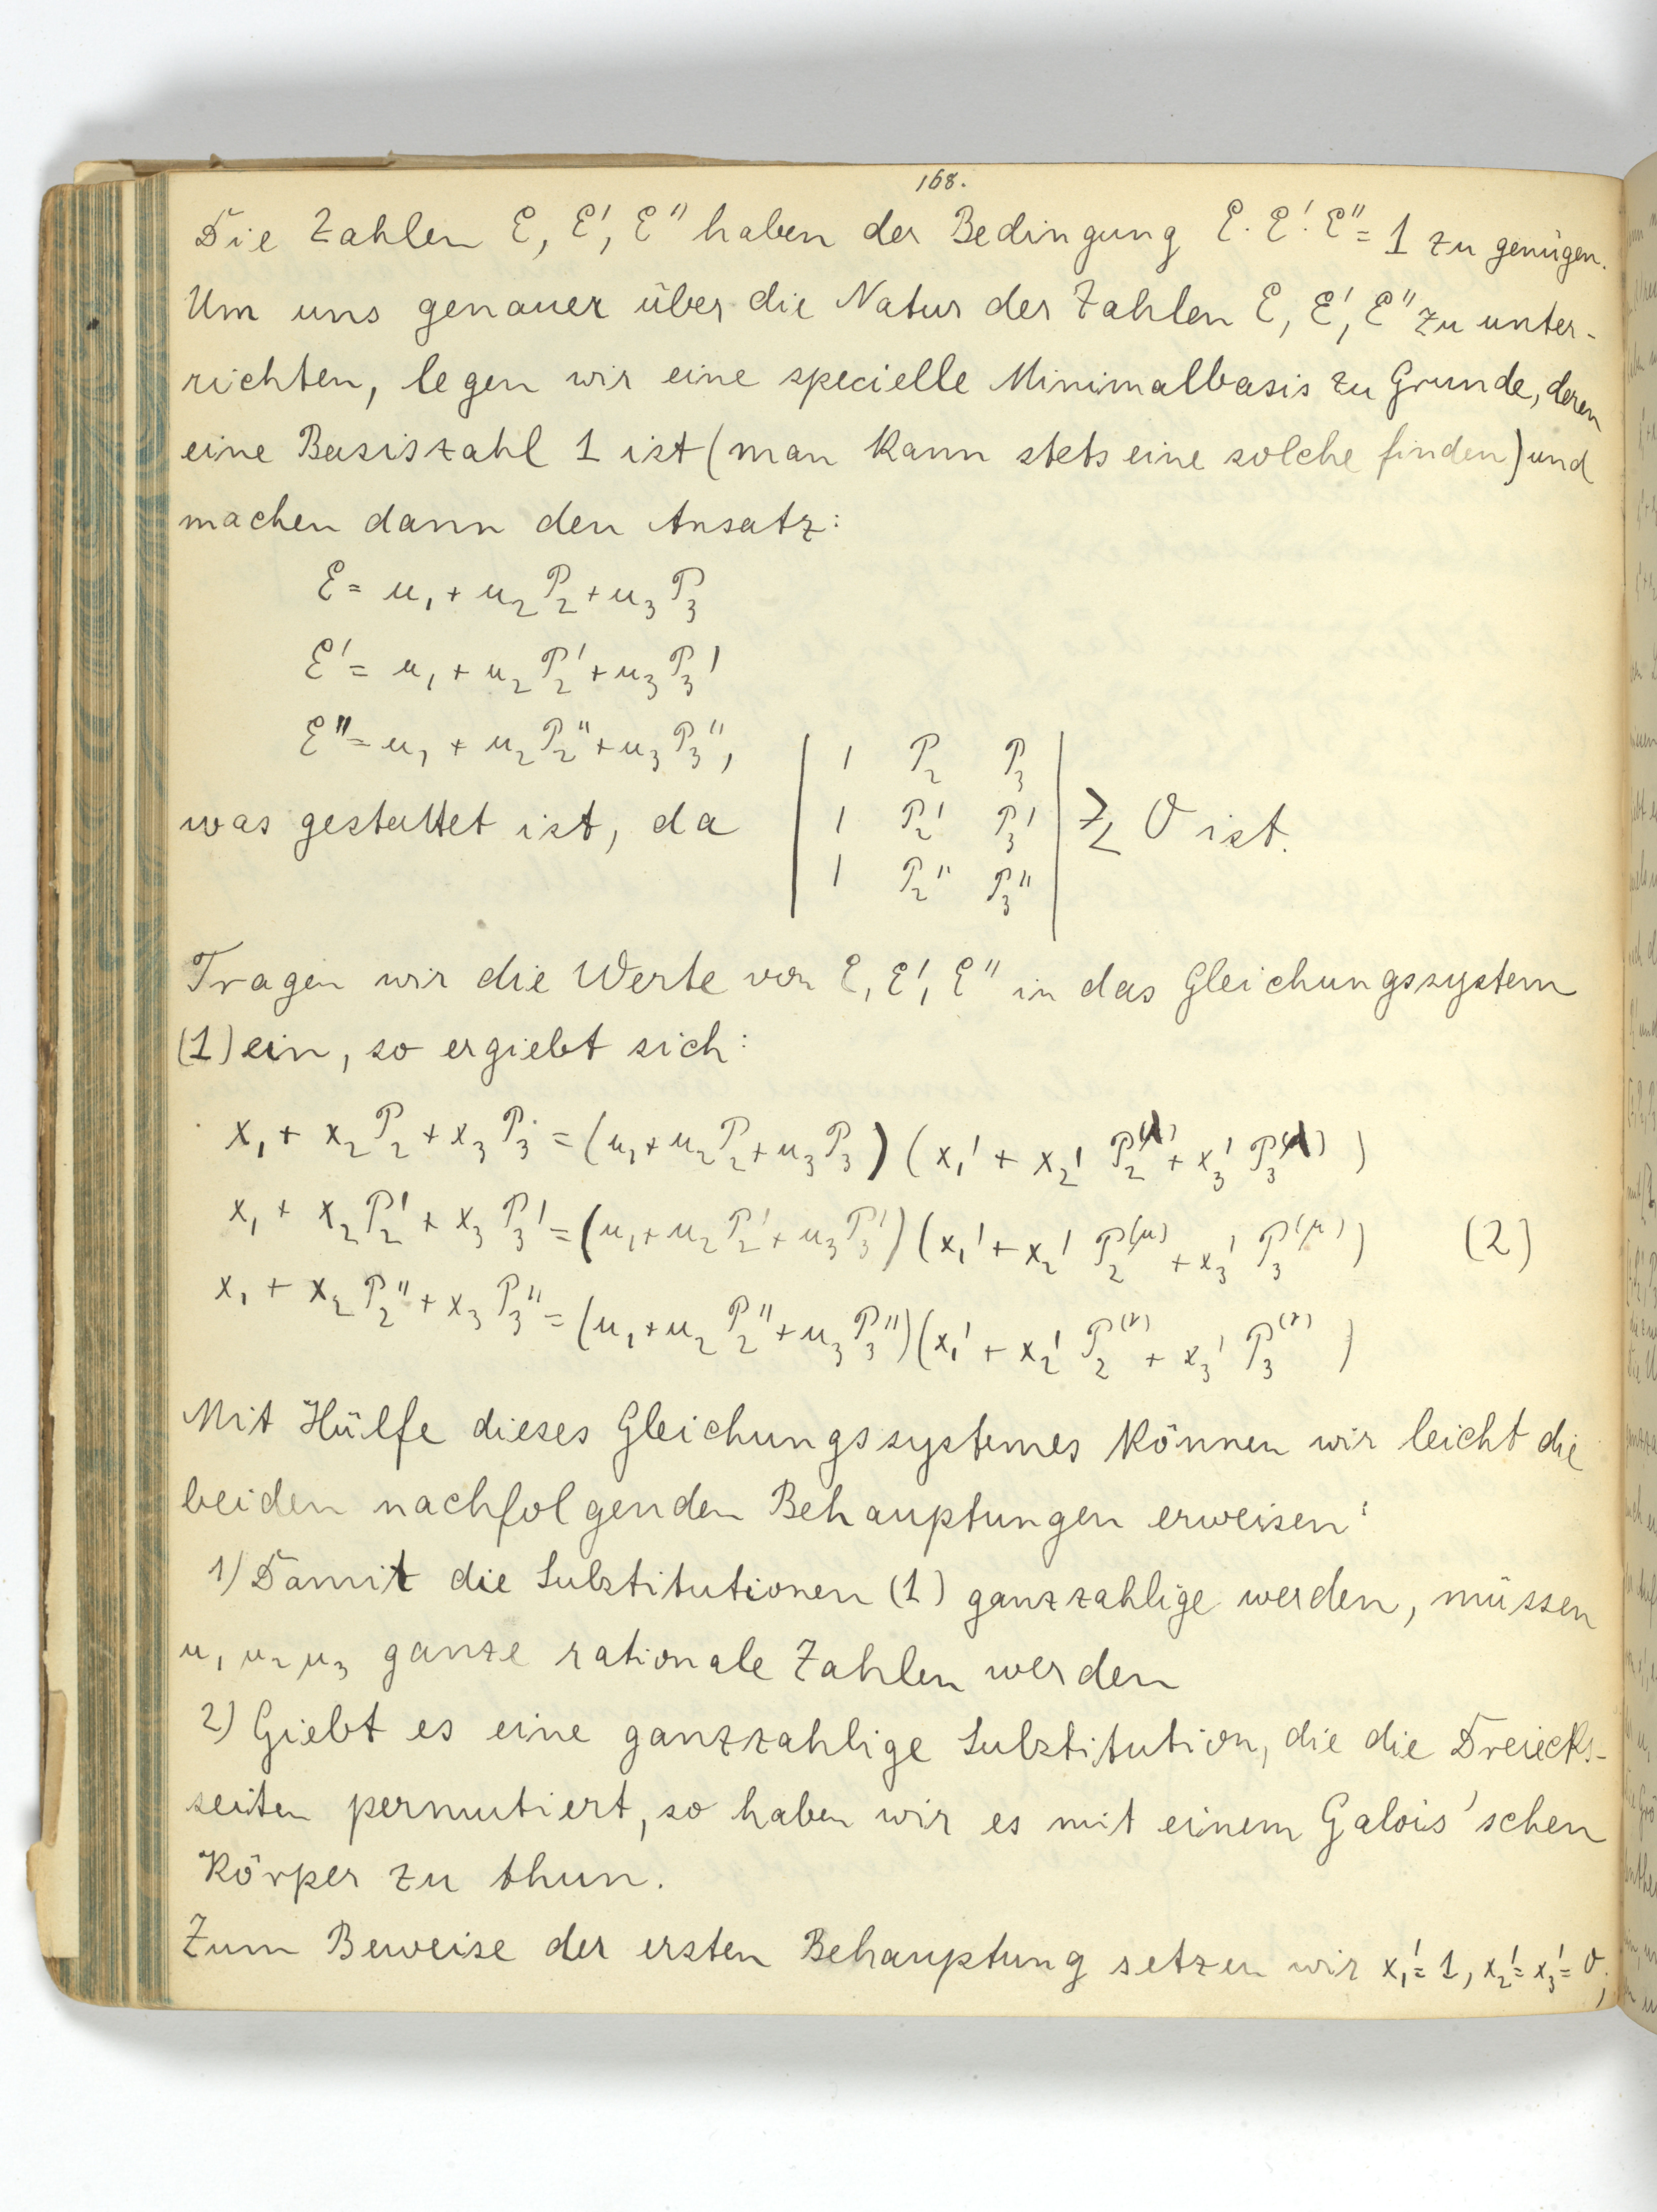 168.
Die Zahlen ℰ, ℰ', ℰ'' haben der Bedingung ℰ · ℰ' · ℰ'' = 1 zu genügen.
Um uns genauer über die Natur der Zahlen ℰ, ℰ', ℰ'' zu unter-
richten, legen wir eine specielle Minimalbasis zu Grunde, deren
eine Basiszahl 1 ist (man kann stets eine solche finden) und
machen dann den Ansatz:
ℰ = u₁ + u₂ P₂ + u₃ P₃
ℰ' = u₁ + u₂ P₂' + u₃ P₃'
ℰ'' = u₁ + u₂ P₂'' + u₃ P₃'',
was gestattet ist, da | 1 P₂ P₃ | 1 P₂' P₃' | 1 P₂'' P₃'' | ≷ 0 ist.
Tragen wir die Werte von ℰ, ℰ', ℰ'' in das Gleichungssystem
(1) ein, so ergiebt sich:
x₁ + x₂ P₂ + x₃ P₃ = (u₁ + u₂ P₂ + u₃ P₃) (x₁' + x₂' P₂^(λ) + x₃' P₃^(λ))
x₁ + x₂ P₂' + x₃ P₃' = (u₁ + u₂ P₂' + u₃ P₃') (x₁' + x₂' P₂^(μ) + x₃' P₃^(μ)) (2)
x₁ + x₂ P₂'' + x₃ P₃'' = (u₁ + u₂ P₂'' + u₃ P₃'') (x₁' + x₂' P₂^(ν) + x₃' P₃^(ν))
Mit Hülfe dieses Gleichungssystemes können wir leicht die
beiden nachfolgenden Behauptungen erweisen:
1) Damit die Substitutionen (1) ganzzahlige werden, müssen
u₁ u₂ u₃ ganze rationale Zahlen werden
2) Giebt es eine ganzzahlige Substitution, die die Dreiecks-
seiten permutiert, so haben wir es mit einem Galois'schen
Körper zu thun.
Zum Beweise der ersten Behauptung setzen wir x₁' = 1, x₂' = x₃' = 0;